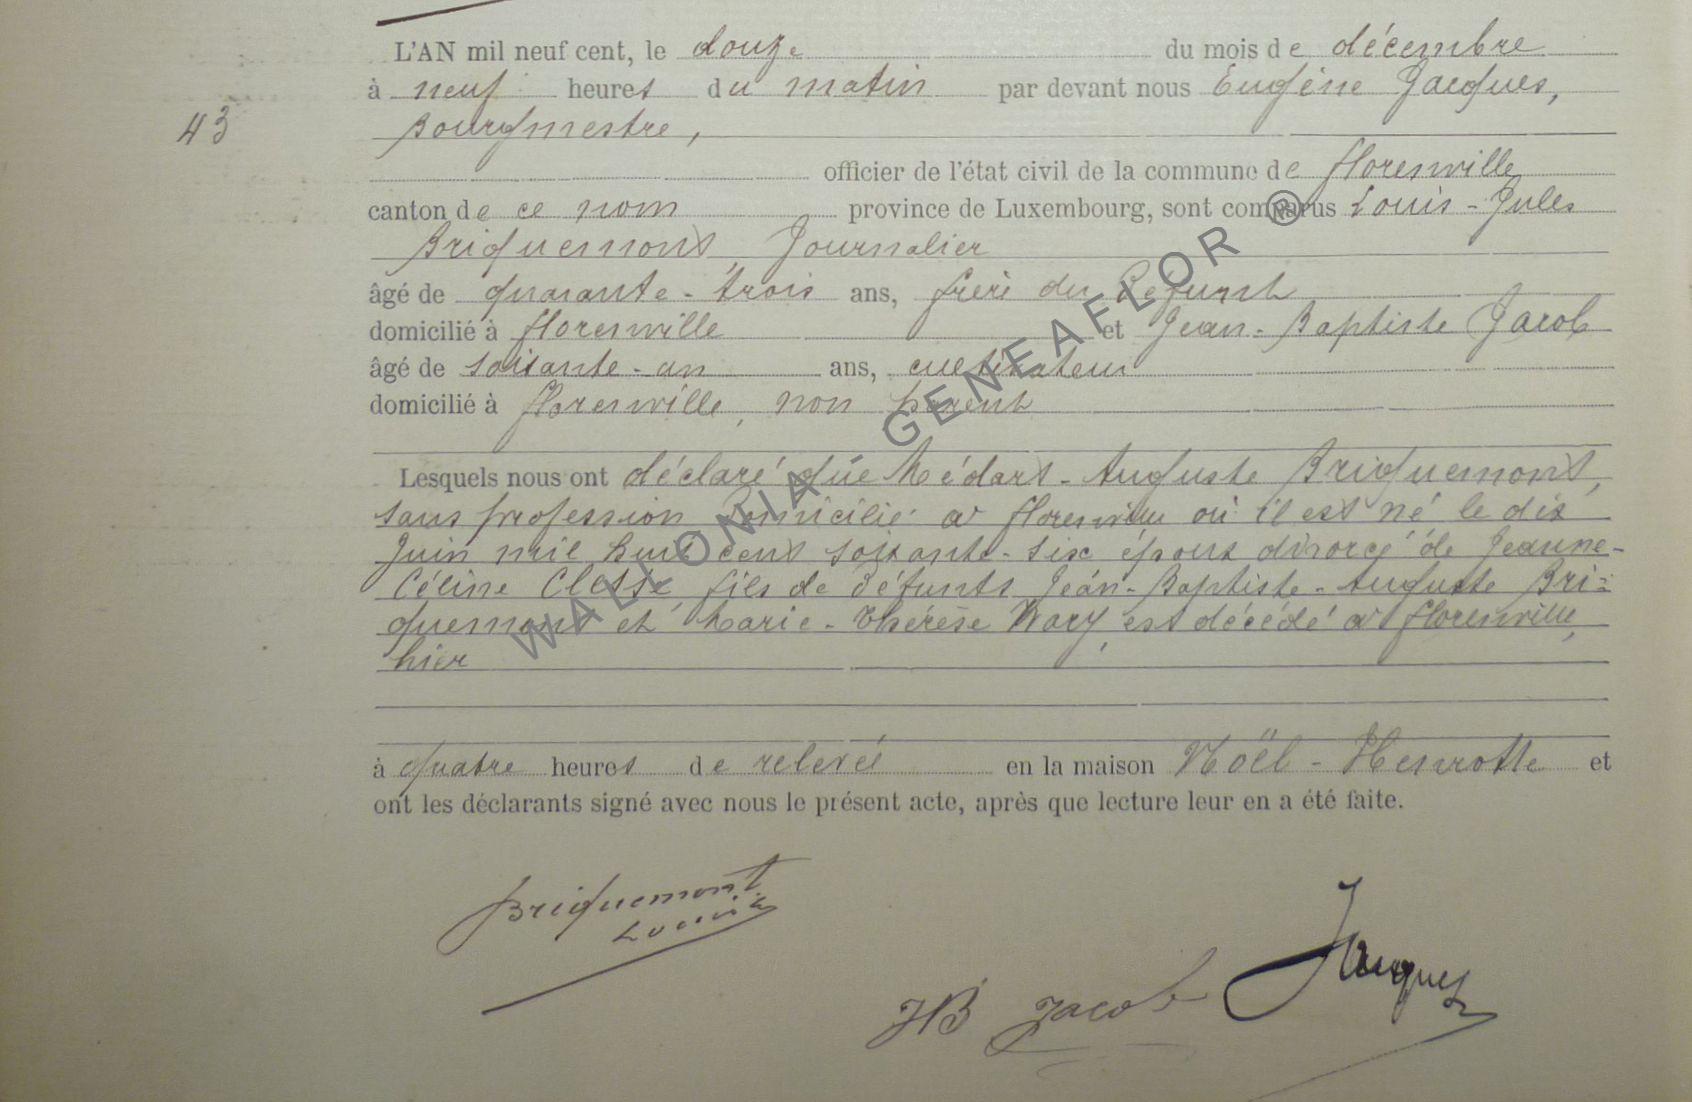 L'AN mil neuf cent, le douze du mois de décembre
à neuf heures du matin par devant nous Eugène Jacques,
43
Bourgmestre,
officier de l'état civil de la commune de florenville
canton de ce nom province de Luxembourg, sont comparus Louis-Jules
Briquemont, Journalier
âgé de quarante-trois ans, frère du Défunt
domicilié à florenville et Jean-Baptiste Jacob
âgé de soixante-un ans, cultivateur
domicilié à florenville, non parent
Lesquels nous ont déclaré que Médart-Auguste Briquemont,
sans profession Domicilié à florenville où il est né le dix
Juin mil huit cent soixante-six époux divorcé de Jeanne-
Céline Clesse fils de Défunts Jean-Baptiste-Auguste Bri-
quemont et Marie-Thérèse Wary, est décédé à florenville,
hier
à quatre heures de relevée en la maison Noël-Henrotte et
ont les déclarants signé avec nous le présent acte, après que lecture leur en a été faite.
Briquemont
Louis
JB Jacob
Jacques
WALLONIA GENEAFLOR ®